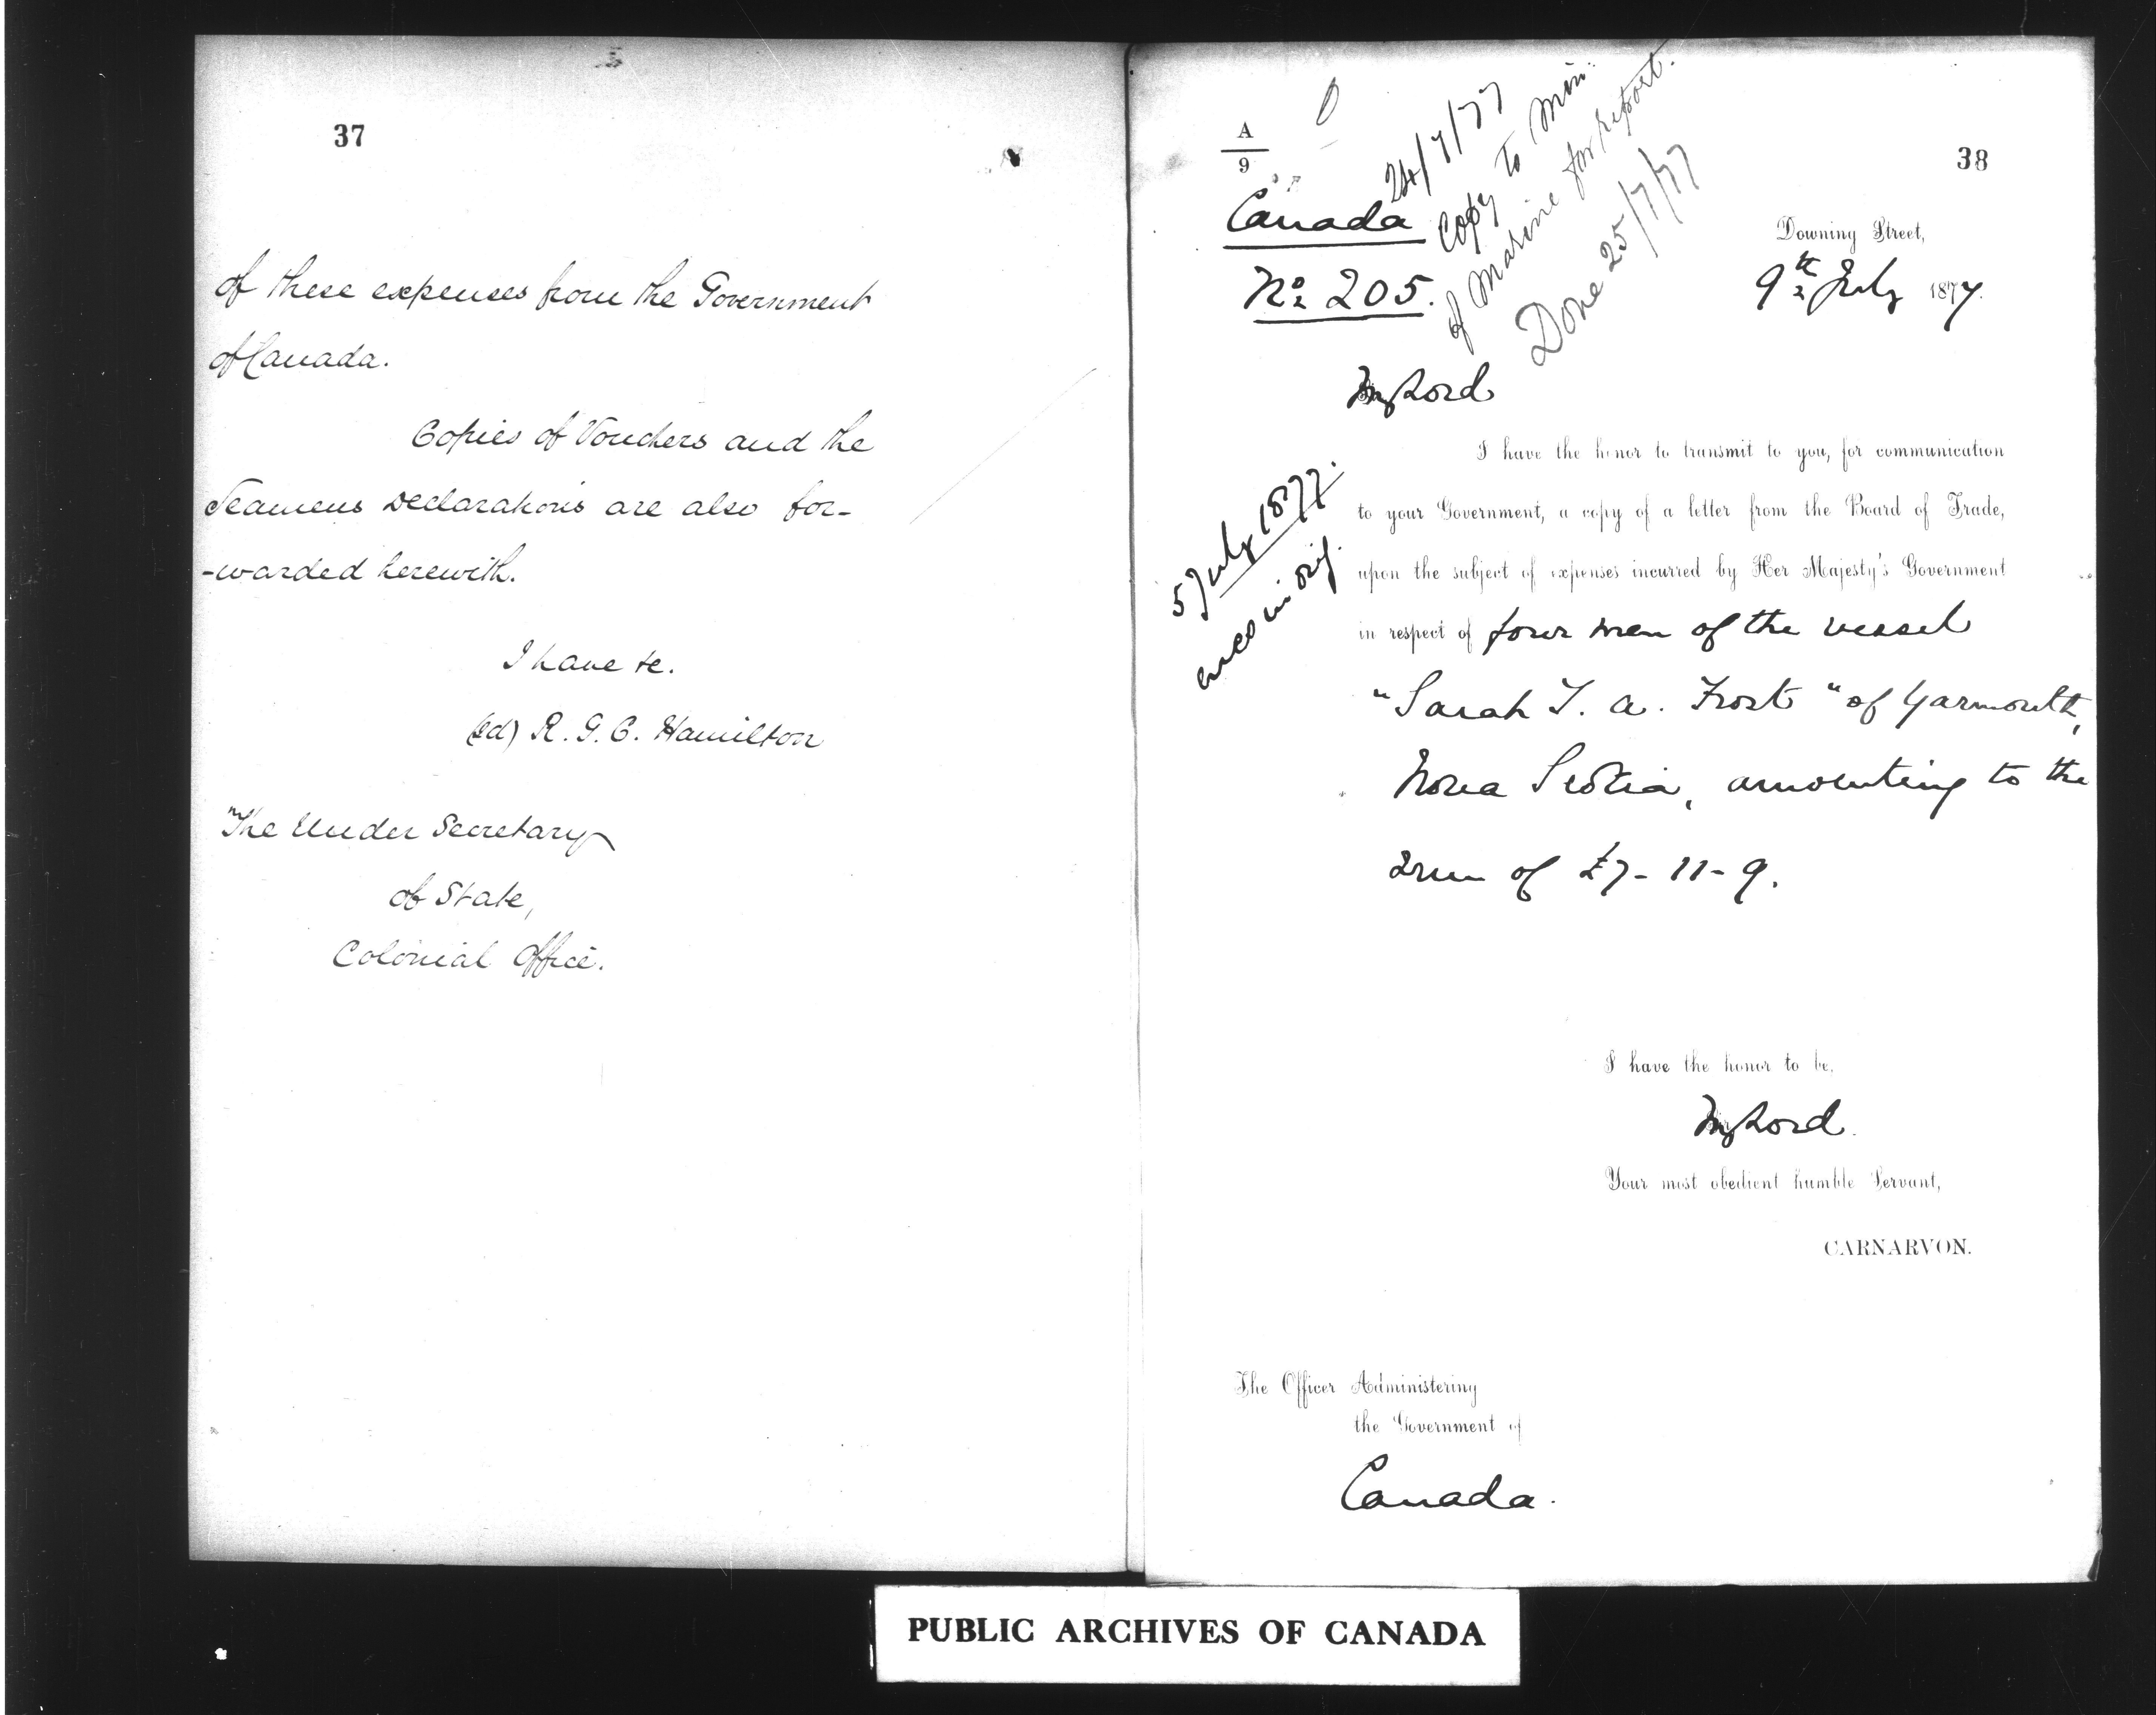 37
of these expenses from the Government
of Canada.
Copies of Vouchers and the
Seamens Declarations are also for-
-warded herewith.
I have &c.
(sd) R. G. C. Hamilton
The Under Secretary
of State,
Colonial Office.
A
9
Canada
No 205.
24/7/77
Copy to Min.
of Marine for report.
Done 25/7/77
38
Downing Street,
9th July 1877.
My Lord
5 July 1877.
encs in orig.
I have the honor to transmit to you, for communication
to your Government, a copy of a letter from the Board of Trade,
upon the subject of expenses incurred by Her Majesty's Government
in respect of four men of the vessel
"Sarah T. A. Frost" of Yarmouth,
Nova Scotia, amounting to the
sum of £7-11-9.
I have the honor to be,
My Lord
Your most obedient humble Servant,
CARNARVON.
The Officer Administering
the Government of
Canada.
PUBLIC ARCHIVES OF CANADA